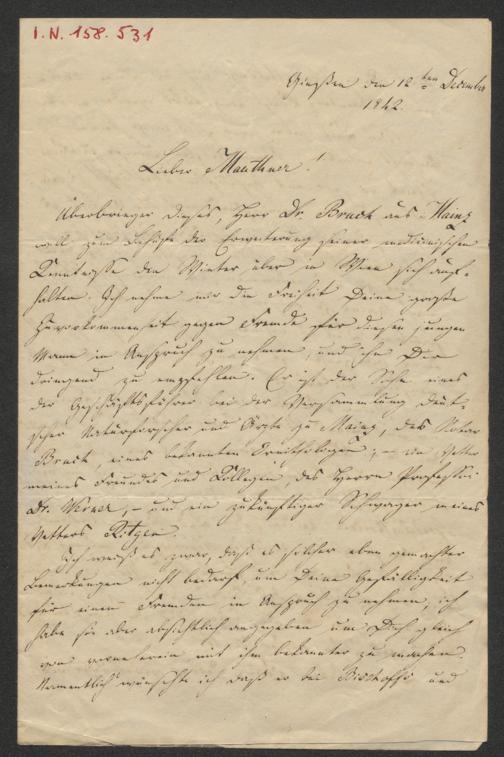 I. N. 158.531
Gießen den 12ten December
1842.
Lieber Mauthner!
Überbringer dieses, Herr Dr. Bruch aus Mainz
will zum Behufe der Erweiterung seiner medizinischen
Kenntnisse den Winter über in Wien sich auf-
halten. Ich nehme mir die Freiheit Deine große
Zuvorkommenheit gegen Fremde für diesen jungen
Mann in Anspruch zu nehmen, und ihn Dir
dringend zu empfehlen. Er ist der Sohn eines
der Geschäftsführer bei der Versammlung deut-
scher Naturforscher und Ärzte zu Mainz, des Notar
Bruch, eines bekannten Ornithologen; – ein Vetter
meines Freundes und Collegen, des Herrn Professor
Dr. Werner, – und ein zukünftiger Schwager meines
Vetters Ritgen.
Ich weiß es zwar, daß es solcher eben gemachter
Bemerkungen nicht bedarf, um Deine Gefälligkeit
für einen Fremden in Anspruch zu nehmen, ich
habe sie aber absichtlich angegeben um Dich gleich
von vorneherein mit ihm bekannter zu machen.
Namentlich wünschte ich daß er bei Bischoffs und